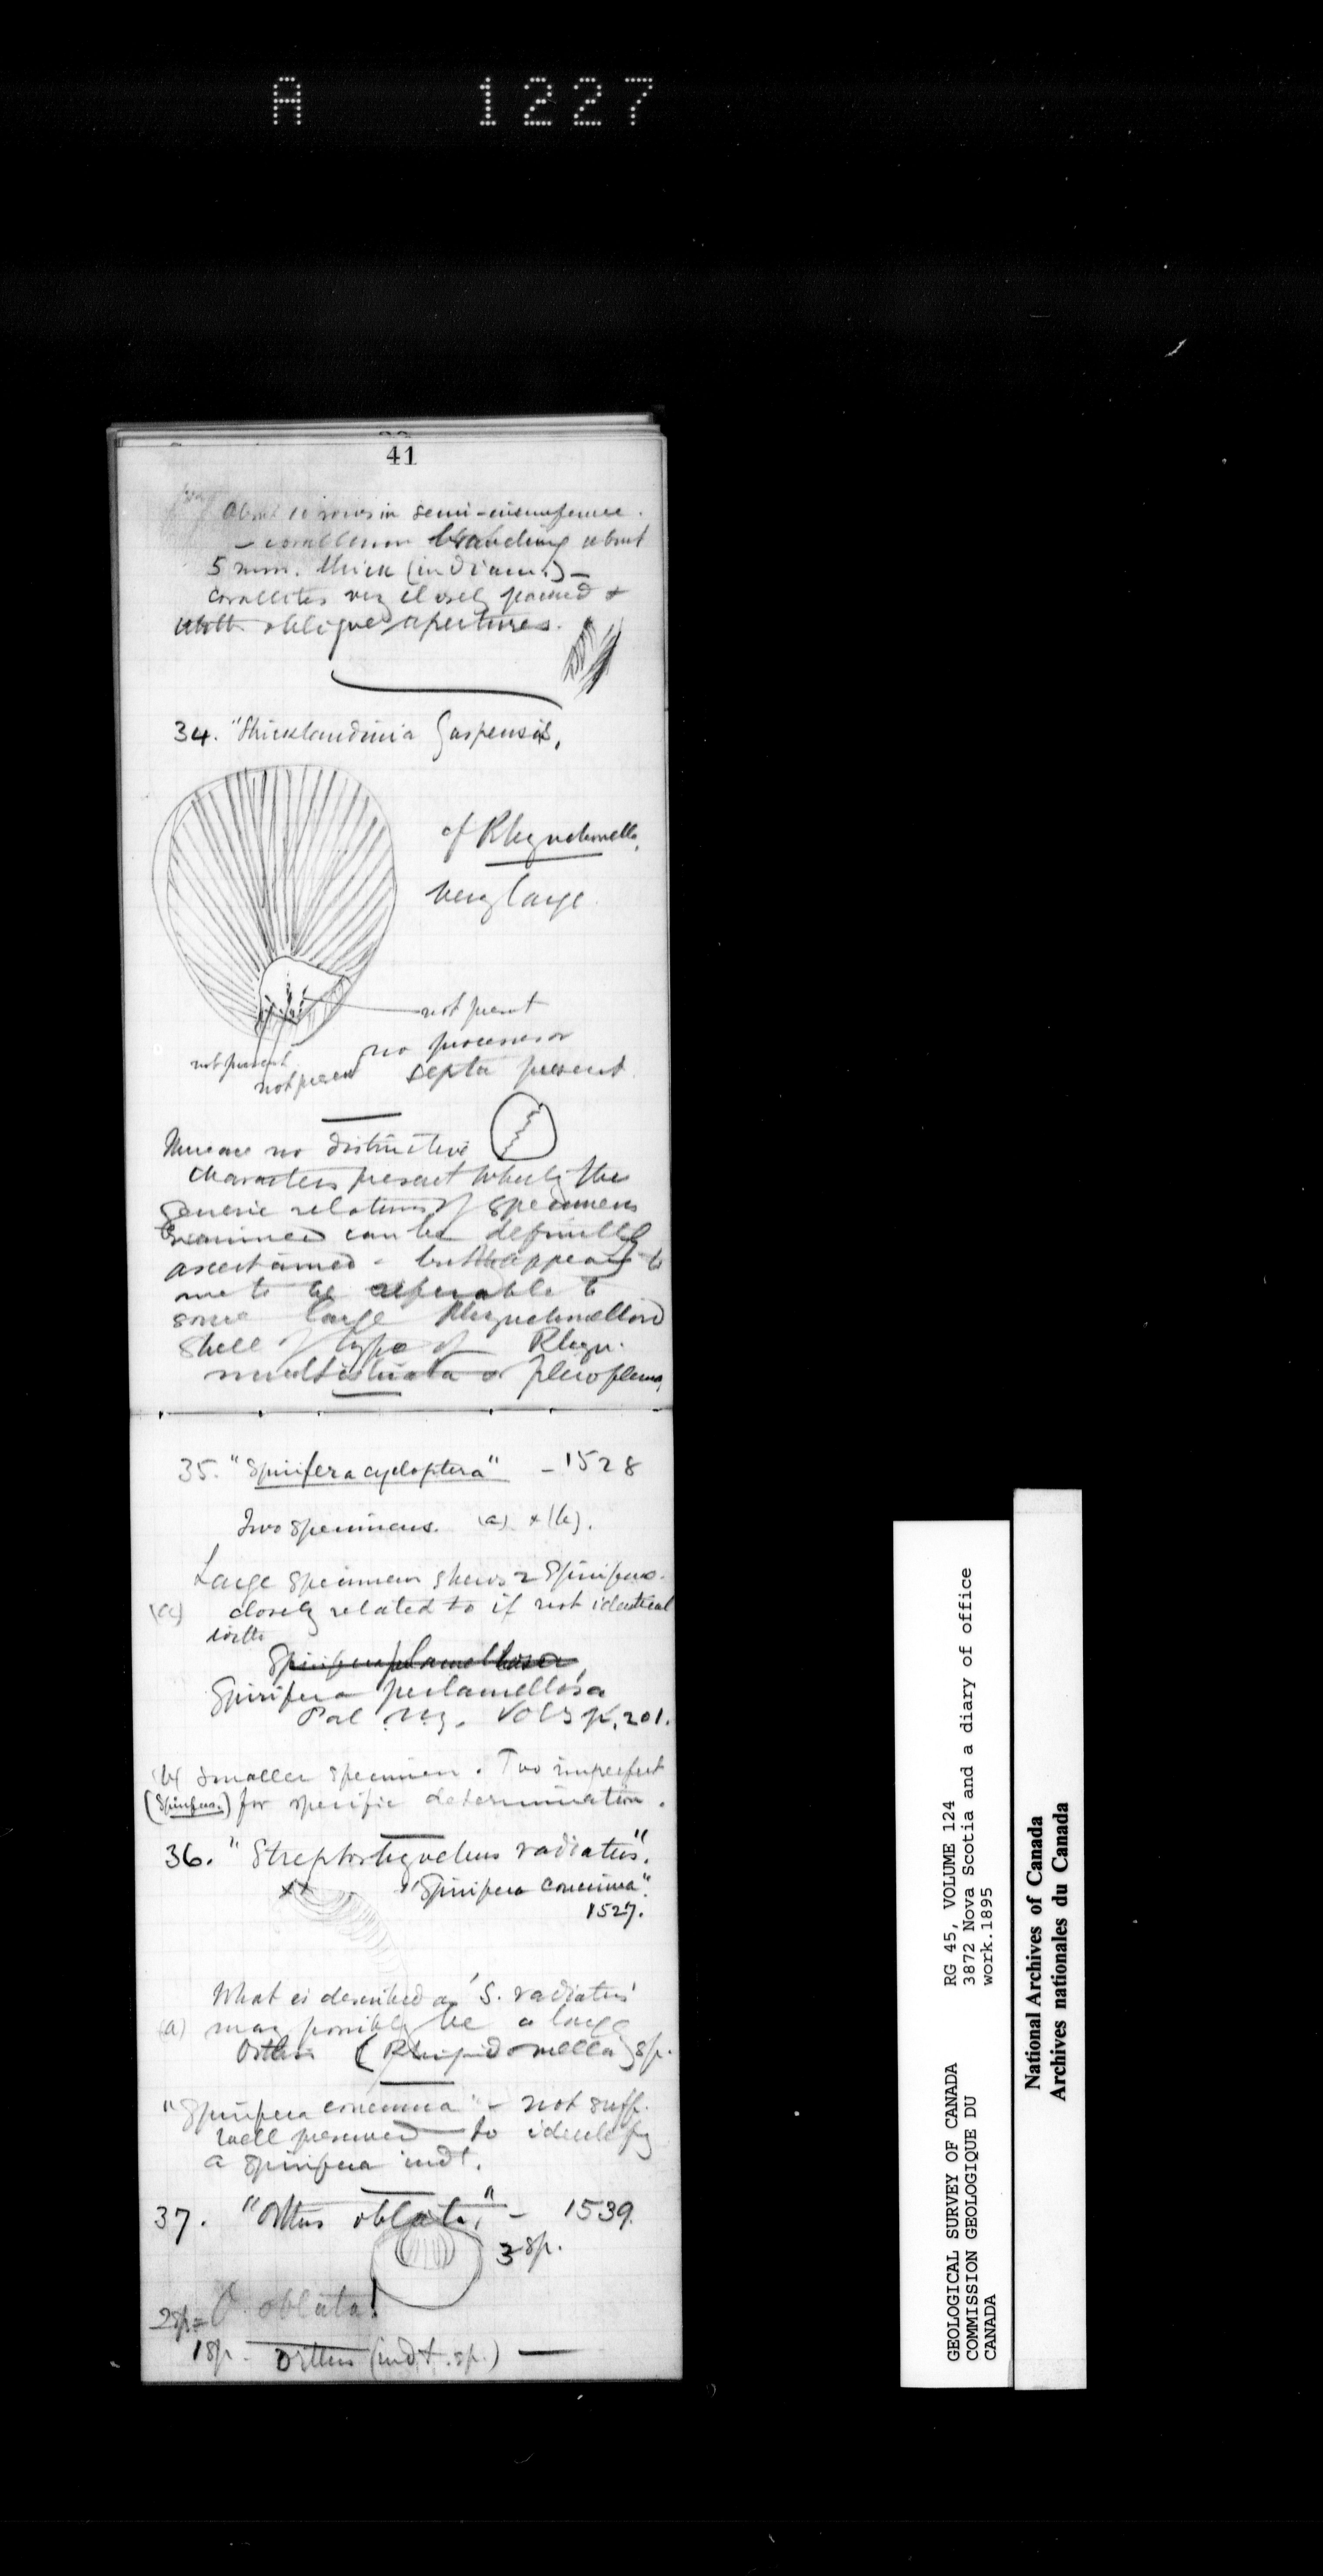 A 1227
41
About 10 rows in semi-circumference.
– corallum branching about
5 mm. thick (in diam.) –
Corallites very closely packed &
with oblique apertures.
34. "Stricklandinia Gaspensis,
cf Rhynchonella,
very large
not present
not present
not present
no processes or
septa present
There are no distinctive
characters present whereby the
generic relations of specimens
examined can be definitely
ascertained - but appears to
me to be referable to
some large Rhynchonelloid
shell of type of Rhyn.
multistriata or pleiopleura
35. "Spirifera cycloptera" – 1528
Two specimens. (a) & (b).
Large specimen shews 2 Spirifers
(a) closely related to if not identical
with
Spirifera perlamellosa
Spirifera perlamellosa
Pal N.Y. Vol 3 p. 201.
(b) Smaller specimen. Too imperfect
(Spirifera) for specific determination.
36. "Streptorhynchus radiatus".
xx "Spirifera concinna".
1527.
What is described as 'S. radiatus'
(a) may possibly be a large
Orthis (Rhipidomella) sp.
"Spirifera concinna" – not suff.
well preserved to identify
a Spirifera indt.
37. "Orthis oblata," – 1539.
3 sp.
2 sp = O. oblata!
1 sp. Orthis (indt. sp.) —
GEOLOGICAL SURVEY OF CANADA
COMMISSION GEOLOGIQUE DU
CANADA
RG 45, VOLUME 124
3872 Nova Scotia and a diary of office
work.1895
National Archives of Canada
Archives nationales du Canada